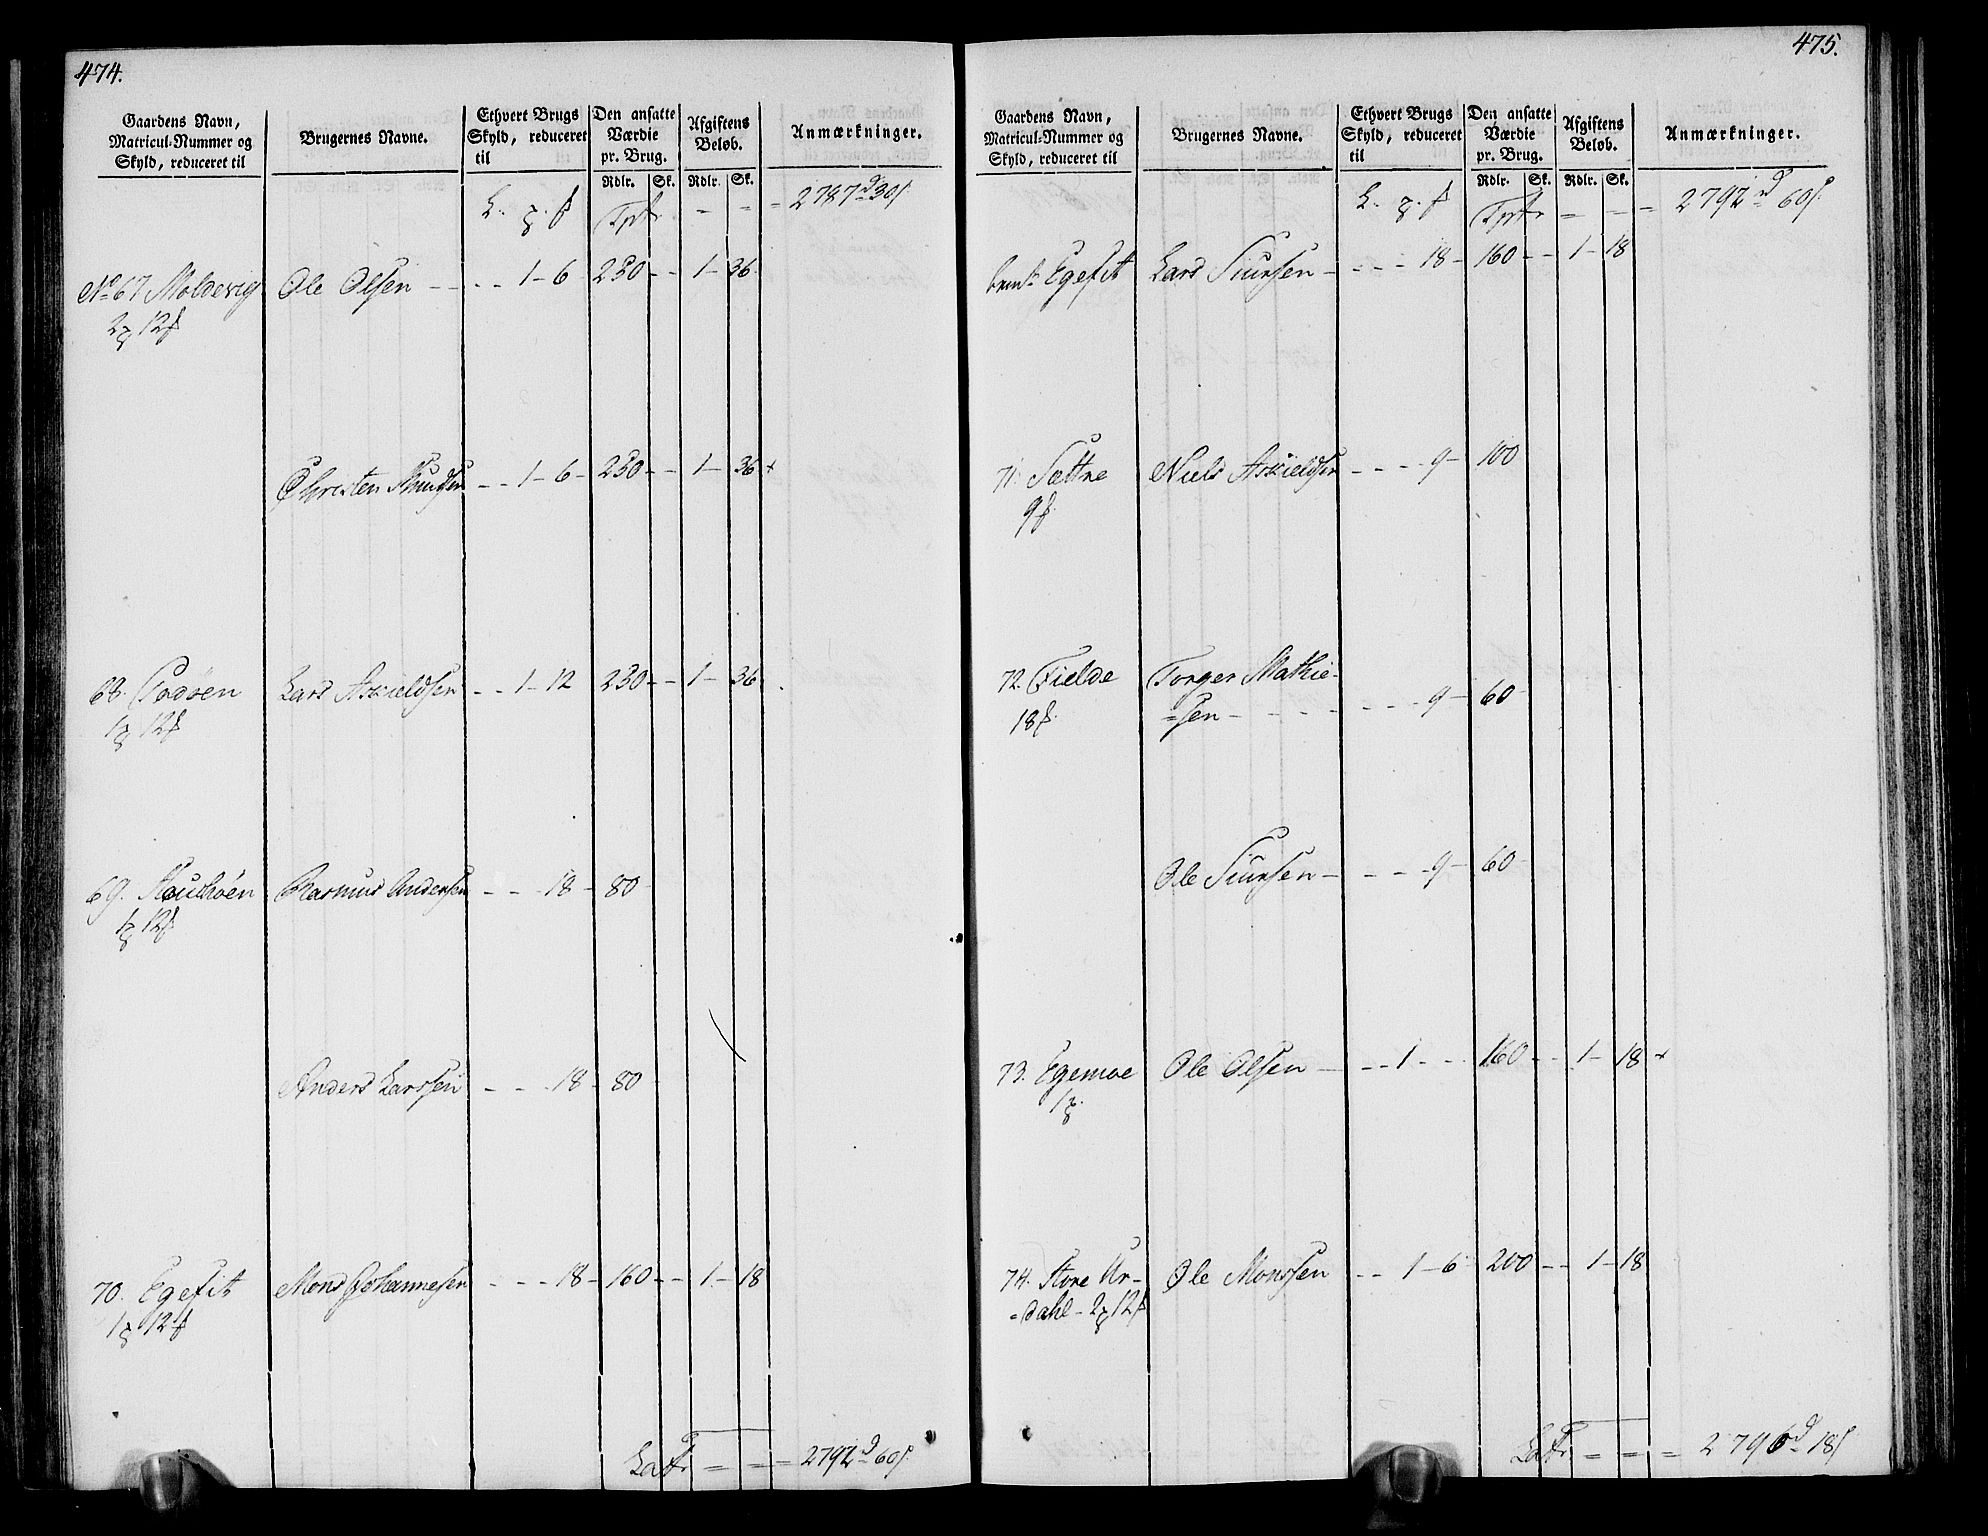 474.
Gaardens Navn, Matricul-Nummer og Skyld, reduceret til | Brugernes Navne. | Ethvert Brugs Skyld, reduceret til | Den ansatte Værdie pr. Brug. Rdlr. Sk. | Afgiftens Beløb. Rdlr. Sk. | Anmærkninger.
= = = 2787 d 30 s
No 67 Moldevig Ole Olsen - - - - 1 - 6 230 - - 1 - 36
2 12
Christen Knudsen - - 1 - 6 - 230 - - 1 - 36 x
68. Lars Askieldsen - - 1 - 12 230 - - 1 - 36
1 12
69. Rasmus Andersen - - - 18 - 80
1 12
Anders Larssen - - - 18 - 80
70. Egesit Mons Johannesen - - - 18 - 160 - - 1 - 18
1 12
Latr = = = 2792 d 60 s
475.
Gaardens Navn, Matricul-Nummer og Skyld, reduceret til | Brugernes Navne. | Ethvert Brugs Skyld, reduceret til | Den ansatte Værdie pr. Brug. Rdlr. Sk. | Afgiftens Beløb. Rdlr. Sk. | Anmærkninger.
= = = 2792 d 60 s
Egesit Lars Siursen - - - - 18 - 160 - - 1 - 18
71. Sættre Niels Askieldsen - - - - 9 - 100
9
72. Fielde Torger Mathie-
18 =sen - - - - - - - 9 - 60
Ole Siursen - - - - - 9 - 60
73. Egemoe Ole Olsen - - - 1 - - - 160 - - 1 - 18 x
1
74. Store Ur- Ole Monssen - - 1 - 6 200 - - 1 - 18
=dahl - 2 12
Latr = = = 2796 d 18 s